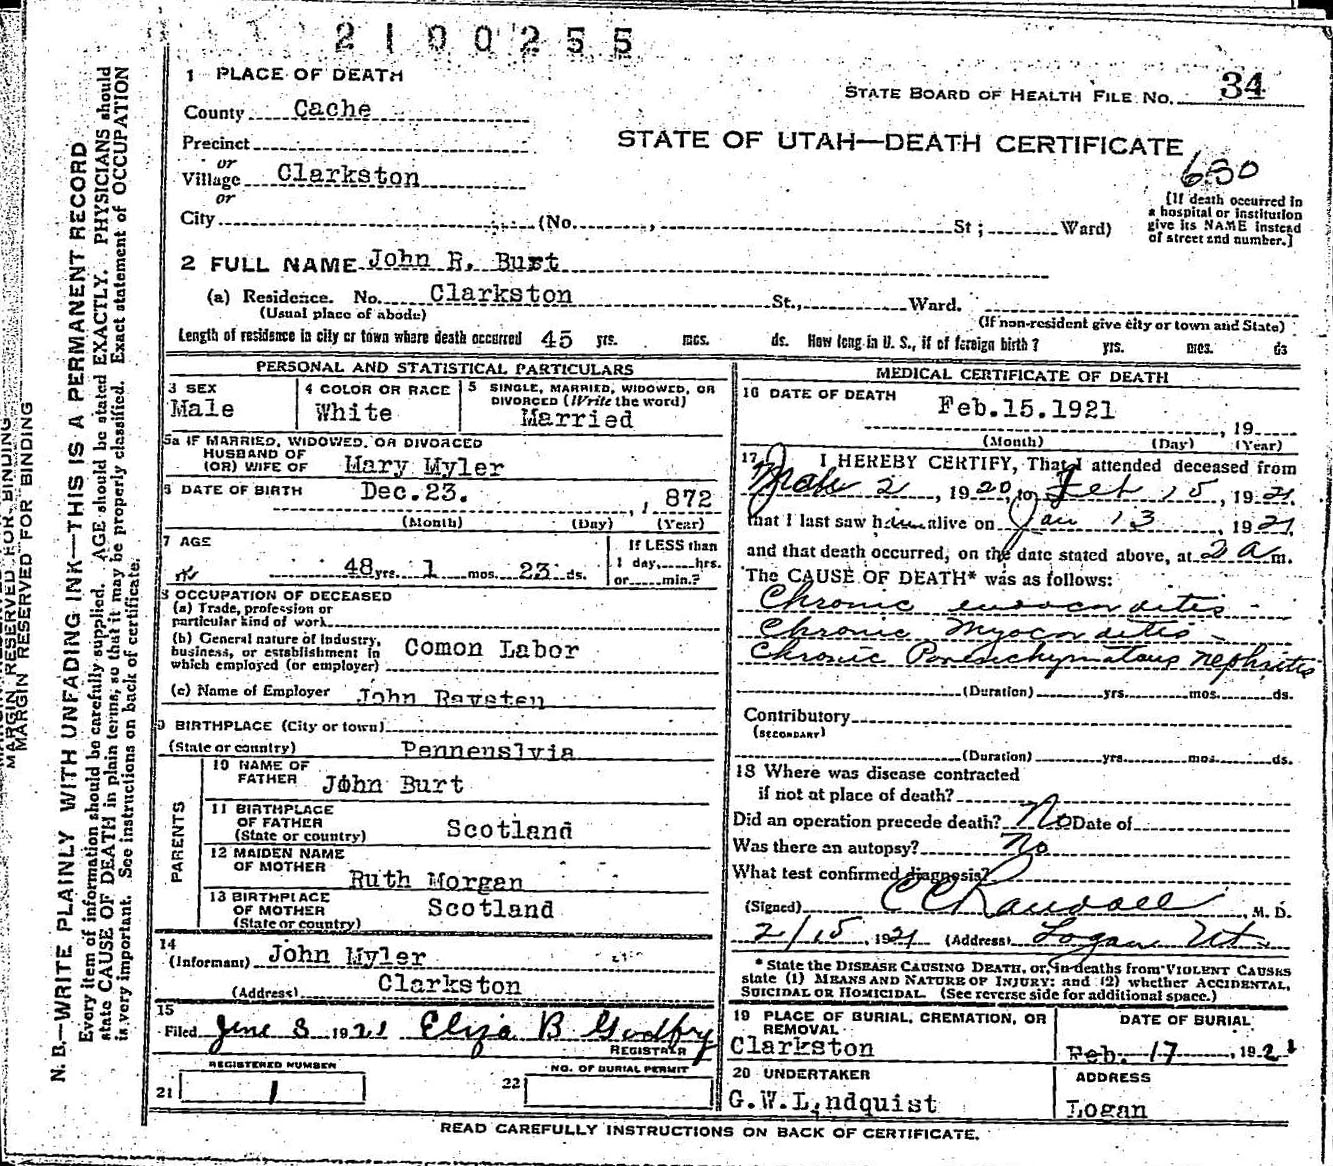 2100255
1 PLACE OF DEATH
STATE BOARD OF HEALTH FILE NO. 34
County Cache
STATE OF UTAH—DEATH CERTIFICATE
Precinct
or
Village Clarkston
650
or
City (No. , St ; Ward)
[If death occurred in
a hospital or institution
give its NAME instead
of street and number.]
2 FULL NAME John R. Burt
(a) Residence. No. Clarkston St., Ward.
(Usual place of abode)
(If non-resident give city or town and State)
Length of residence in city or town where death occurred 45 yrs. mos. ds. How long in U. S., if of foreign birth? yrs. mos. ds
PERSONAL AND STATISTICAL PARTICULARS
3 SEX
Male
4 COLOR OR RACE
White
5 SINGLE, MARRIED, WIDOWED, OR
DIVORCED (Write the word)
Married
5a IF MARRIED, WIDOWED, OR DIVORCED
HUSBAND OF
(OR) WIFE OF Mary Myler
6 DATE OF BIRTH Dec.23. , 1872
(Month) (Day) (Year)
7 AGE
48 yrs. 1 mos. 23 ds.
If LESS than
1 day, hrs.
or min.?
8 OCCUPATION OF DECEASED
(a) Trade, profession or
particular kind of work
(b) General nature of industry,
business, or establishment in
which employed (or employer) Comon Labor
(c) Name of Employer John Raysten
9 BIRTHPLACE (City or town)
(State or country) Pennenslvia
PARENTS
10 NAME OF
FATHER John Burt
11 BIRTHPLACE
OF FATHER
(State or country) Scotland
12 MAIDEN NAME
OF MOTHER
Ruth Morgan
13 BIRTHPLACE
OF MOTHER
(State or country) Scotland
14
(Informant) John Myler
(Address) Clarkston
15
Filed June 8 1921 Eliza B Godfry
REGISTRAR
REGISTERED NUMBER
21 1
NO. OF BURIAL PERMIT
22
MEDICAL CERTIFICATE OF DEATH
16 DATE OF DEATH
Feb.15.1921 , 19
(Month) (Day) (Year)
17 I HEREBY CERTIFY, That I attended deceased from
Mar 2 , 1920, to Feb 15, 1921
that I last saw him alive on Jan 13 , 1921
and that death occurred, on the date stated above, at 2 a m.
The CAUSE OF DEATH* was as follows:
Chronic endocarditis -
Chronic Myocarditis -
Chronic Parenchymatous nephritis
(Duration) yrs. mos. ds.
Contributory
(SECONDARY)
(Duration) yrs. mos. ds.
18 Where was disease contracted
if not at place of death?
Did an operation precede death? No Date of
Was there an autopsy? No
What test confirmed diagnosis?
(Signed) CC Randall , M. D.
2/15, 1921 (Address) Logan Ut.
* State the DISEASE CAUSING DEATH, or, in deaths from VIOLENT CAUSES
state (1) MEANS AND NATURE OF INJURY; and (2) whether ACCIDENTAL,
SUICIDAL OR HOMICIDAL. (See reverse side for additional space.)
19 PLACE OF BURIAL, CREMATION, OR
REMOVAL
Clarkston
DATE OF BURIAL
Feb. 17 , 1921
20 UNDERTAKER
G.W.Lindquist
ADDRESS
Logan
READ CAREFULLY INSTRUCTIONS ON BACK OF CERTIFICATE.
MARGIN RESERVED FOR BINDING
MARGIN RESERVED FOR BINDING
N. B.—WRITE PLAINLY WITH UNFADING INK—THIS IS A PERMANENT RECORD
Every item of information should be carefully supplied. AGE should be stated EXACTLY. PHYSICIANS should
state CAUSE OF DEATH in plain terms, so that it may be properly classified. Exact statement of OCCUPATION
is very important. See instructions on back of certificate.